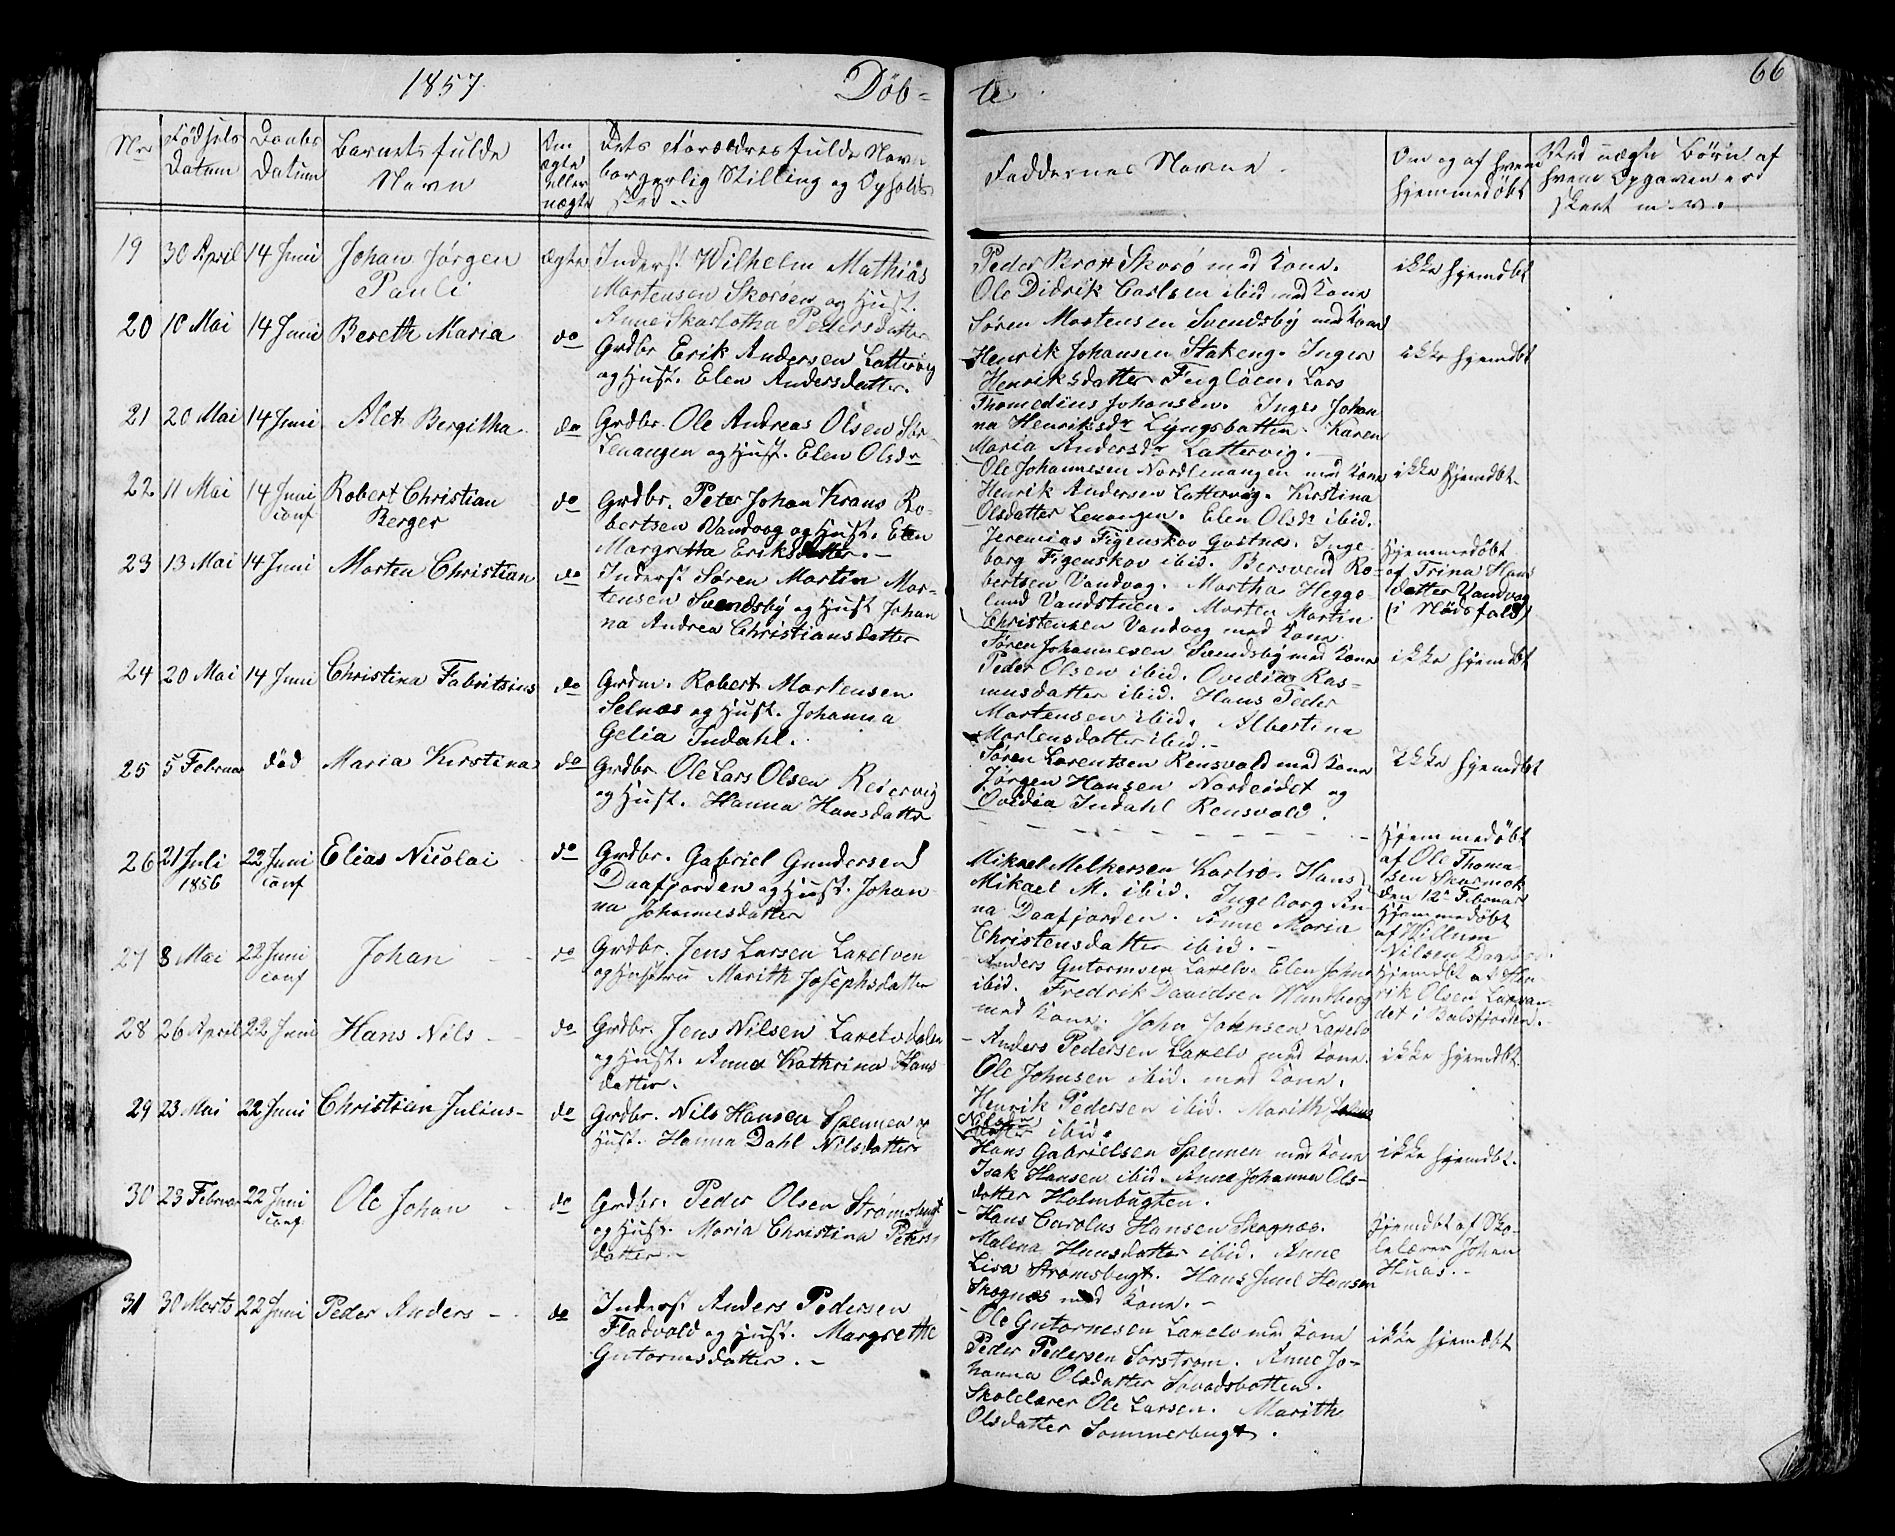 1857.
Döb=
te
66
No
Födsels
Datum
Daabs
Datum
Barnets fulde
Navn
Om
ægte
eller
uægte
Dets Forældres fulde Navn
borgerlig Stilling og Opholds
sted
Faddernes Navne
Om og af hvem
hjemmedöbt
Ved uægte Börn af
hvem Opgaven er
skeet m. v.
19 30 April 14 Juni Johan Jörgen
Pauli
ægte
Inderst Wilhelm Mathias
Mortensen Skoröen og Hust.
Anne Skarlotha Pedersdatter
Peder Brott Skorö med Kone.
Ole Didrik Carlsen ibid med Kone
Sören Mortensen Svendsby med Kone
ikke hjemdbt
20 10 Mai 14 Juni Bereth Maria
do
Grdbr Erik Andersen Lattervig
og Hust. Elen Andersdatter.
Henrik Johansen Stakeng. Inger
Henriksdatter Fuglöen. Lars
Thomedius Johansen. Inger Johan
na Henriksdr Lyngsbotten. Karen
Maria Andersdr Lattervig.
ikke hjemdbt
21 20 Mai 14 Juni Alet Bergitha
do
Grdbr. Ole Andreas Olsen Sör
Lenangen og Hust. Elen Olsdr
Ole Johannesen Nordlenangen med Kone
Henrik Andersen Lattervig. Kirstina
Olsdatter Lenangen. Elen Olsdr ibid.
ikke hjemdbt
22 11 Mai 14 Juni
conf
Robert Christian
Berger
do
Grdbr. Peter Johan Kraus Ro-
bertsen Vandvog og Hust. Elen
Margretha Eriksdatter.
Jeremias Figenskov Goitnæs. Inge
borg Figenskov ibid. Bersvend Ro-
bertsen Vandvog. Martha Hegge
lund Vandstuen. Morten Martin
Christensen Vandvog med Kone
Hjemmedöbt
af Trina Hans
datter Vandvog
(i Nödsfald)
23 13 Mai 14 Juni Morten Christian
do
Inderst Sören Martin Mor-
tensen Svendsby og Hust Johan
na Andrea Christiansdatter
Sören Johannesen Svendsby med Kone
Peder Olsen ibid. Ovidia Ras-
musdatter ibid. Hans Peder
Mortensen ibid. Albertine
Mortensdatter ibid.
ikke hjemdbt
24 20 Mai 14 Juni Christina Fabritsius
do
Grdm. Robert Mortensen
Selnæs og Hust. Johanna
Gelia Indahl.
Sören Lorentsen Rensvold med Kone
Jörgen Hansen Nordeidet og
Ovidia Indahl Rensvold.
ikke hjemdbt
25 5 Februar död Maria Kirstina
do
Grdbr. Ole Lars Olsen Reiervig
og Hust. Hanna Hansdatter
Hjemmedöbt
af Ole Thoma-
sen Skarmok
den 12te Februar
26 21 Juli
1856
22 Juni
conf
Elias Nicolai
do
Grdbr. Gabriel Gundersen
Daafjorden og Hust. Johan
na Johannesdatter
Mikael Melkersen Karlsö. Hans
Mikael M. ibid. Ingeborg An
na Daafjorden. Anne Maria
Christensdatter ibid.
Hjemmedöbt
af Willum
Nilsen
27 8 Mai 22 Juni
conf
Johan
do
Grdbr. Jens Larsen Laxelven
og Hustru Marith Josephsdatter
Anders Gutormsen Laxelv. Elen Johns
ibid. Fredrik Davidsen Wundberg
med Kone. John Johnsen Laxelv
Hjemdbt af Hen
rik Olsen
det i Balsfjorden.
28 26 April 22 Juni Hans Nils
do
Grdbr. Jens Nilsen Laxelvdalen
og Hust. Anna Kathrina Hans
datter.
Anders Pedersen Laxelv med Kone.
Ole Johnsen ibid. med Kone.
Henrik Pedersen ibid. Marith
Nilsdr ibid.
ikke hjemdbt
29 23 Mai 22 Juni Christian Julius
do
Grdbr. Nils Hansen Spennen og
Hust. Hanna Dahl Nilsdatter
Hans Gabrielsen Spennen med Kone
Isak Hansen ibid. Anne Johanna Ols-
datter Holmbugten.
ikke hjemdbt.
30 23 Februar 22 Juni
conf
Ole Johan
do
Grdbr. Peder Olsen Strömsbugt
og Hust. Maria Christina Peters-
datter
Hans Carolus Hansen Skognæs.
Malena Hansdatter ibid. Anne
Lisa Strömsbugt. Hans Juul Hansen
Skognæs med Kone.
Hjemdbt af Sko-
lelærer Johan
Huas.
31 30 Marts 22 Juni Peder Anders
do
Inderst Anders Pedersen
Fladvold og Hust. Margrethe
Gutormsdatter.
Ole Gutormsen Laxelv med Kone
Peder Pedersen Sorström. Anne Jo-
hanna Olsdatter Savadsbotten.
Skolelærer Ole Larsen. Marith
Olsdatter Sommerbugt.
ikke hjemdbt